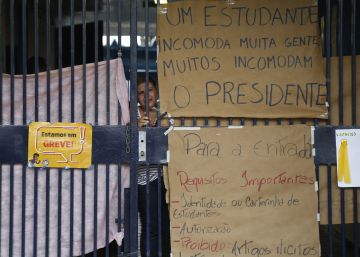 UM ESTUDANTE
INCOMODA MUITA GENTE
MUITOS INCOMODAM
O PRESIDENTE
Estamos em
GREVE!
Para a Entrada
Requisitos Importantes
- Identidade ou Carteirinha de
Estudantes
- Autorização
- Proibido Artigos ilícitos